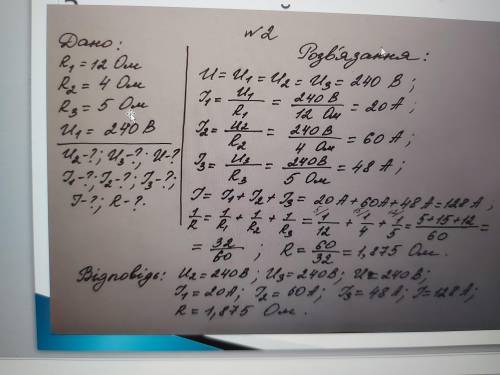 №2
Дано:
R₁ = 12 Ом
R₂ = 4 Ом
R₃ = 5 Ом
U₁ = 240 В
U₂-?; U₃-?; U-?
I₁-?; I₂-?; I₃-?;
I-?; R-?.
Розв'язання:
U = U₁ = U₂ = U₃ = 240 В;
I₁ = U₁/R₁ = 240 В/12 Ом = 20 А;
I₂ = U₂/R₂ = 240 В/4 Ом = 60 А;
I₃ = U₃/R₃ = 240 В/5 Ом = 48 А;
I = I₁ + I₂ + I₃ = 20 А + 60 А + 48 А = 128 А;
1/R = 1/R₁ + 1/R₂ + 1/R₃ = 1/12 + 1/4 + 1/5 = 5+15+12/60 =
= 32/60; R = 60/32 = 1,875 Ом.
Відповідь: U₂ = 240 В; U₃ = 240 В; U = 240 В;
I₁ = 20 А; I₂ = 60 А; I₃ = 48 А; I = 128 А;
R = 1,875 Ом.